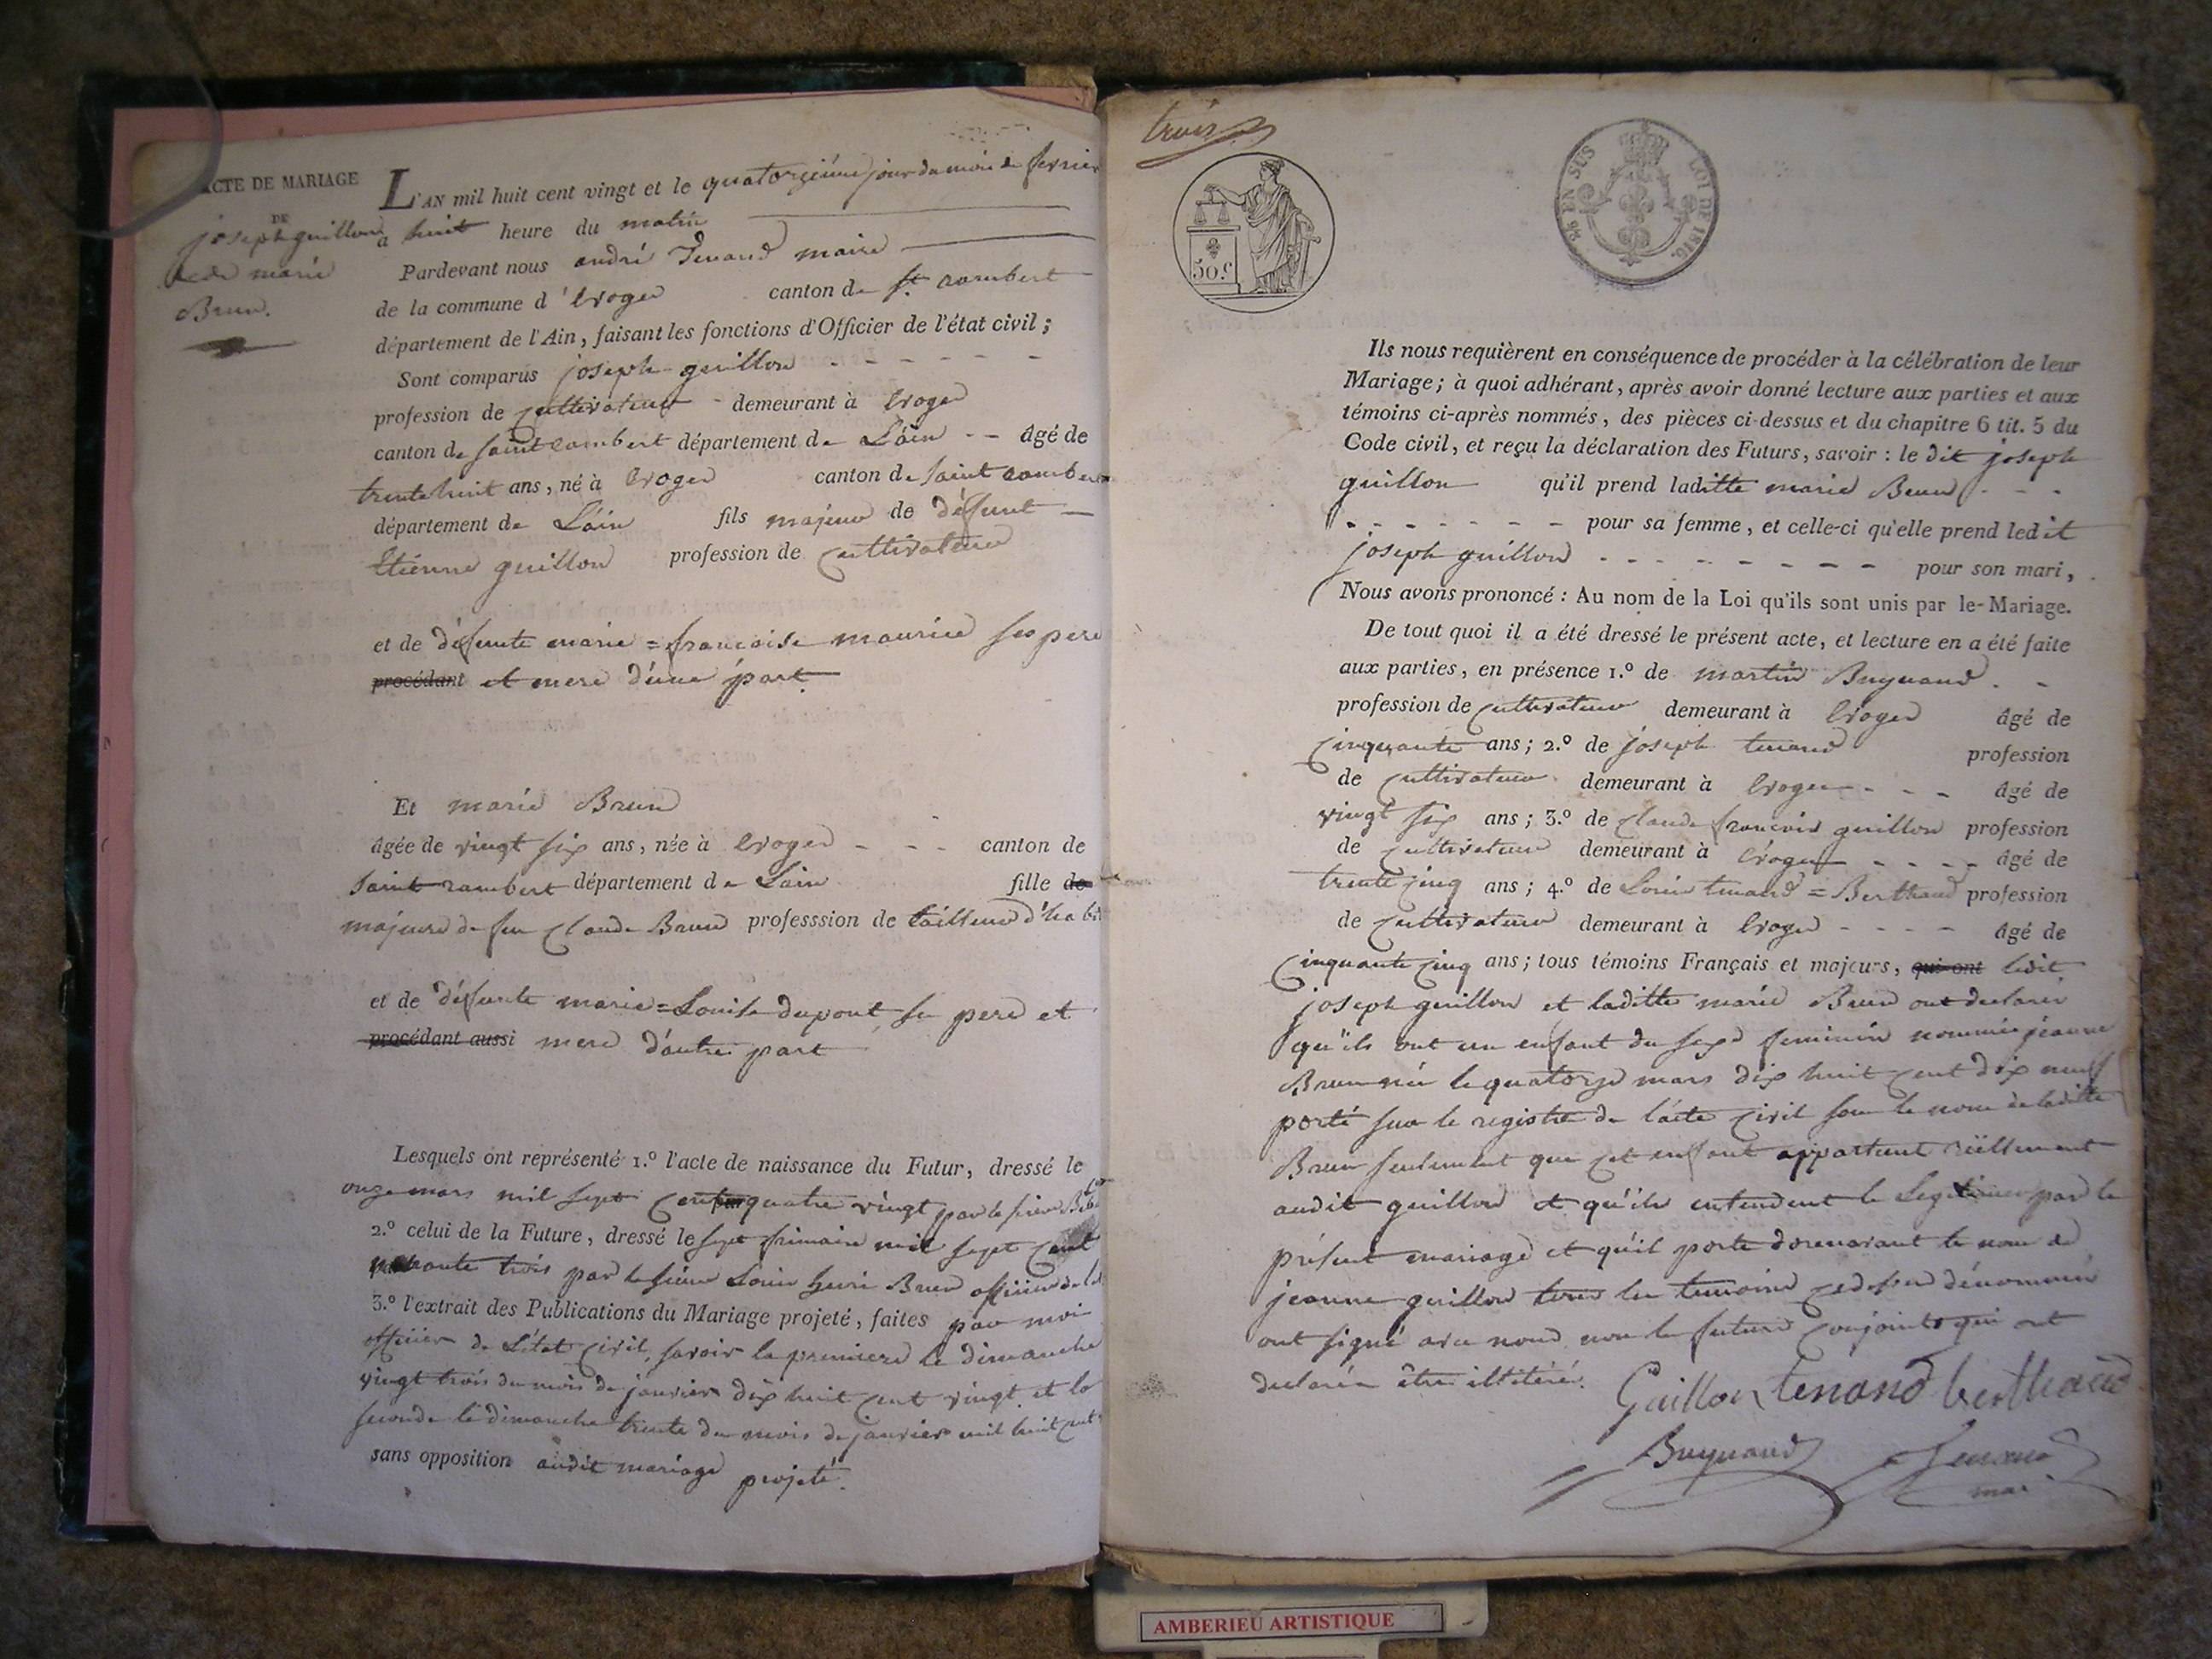 ACTE DE MARIAGE
DE
joseph guillon
et de marie
Brun.
L'AN mil huit cent vingt et le quatorzième jour du mois de fevrier
a huit heure du matin
Pardevant nous andré Tenand maire
de la commune d'Evoges canton de St. rambert
département de l'Ain, faisant les fonctions d'Officier de l'état civil;
Sont comparus joseph guillon
profession de cultivateur demeurant à Evoges
canton de saint rambert département de L'áin âgé de
trente huit ans, né à Evoges canton de saint rambert
département de L'áin fils majeur de défunt
Etienne guillon profession de cultivateur
et de défunte marie=francoise maurice ses pere
procédant et mere d'une part.
Et marie Brun
âgée de vingt six ans, née à Evoges canton de
saint rambert département de Lain fille de
majeure de feu Claude Brun professsion de tailleur d'habit
et de défunte marie=Louise dupont ses pere et
procédant aussi mere d'autre part
Lesquels ont représenté 1.º l'acte de naissance du Futur, dressé le
onze mars mil sept cent quatre vingt par le sieur
2.º celui de la Future, dressé le sept frimaire mil sept cent
nonante trois par le sieur Louis henri Brun officier de
3.º l'extrait des Publications du Mariage projeté, faites par moi
officier de L'état civil, savoir la premiere le dimanche
vingt trois du mois de janvier dix huit cent vingt et la
seconde le dimanche trente du mois de janvier mil huit cent
sans opposition audit mariage projeté.
trois
50 c
EN SUS
LOI DE 1816.
Ils nous requièrent en conséquence de procéder à la célébration de leur
Mariage; à quoi adhérant, après avoir donné lecture aux parties et aux
témoins ci-après nommés, des pièces ci-dessus et du chapitre 6 tit. 5 du
Code civil, et reçu la déclaration des Futurs, savoir: le dit joseph
guillon qu'il prend laditte marie Brun
pour sa femme, et celle-ci qu'elle prend ledit
joseph guillon pour son mari,
Nous avons prononcé: Au nom de la Loi qu'ils sont unis par le-Mariage.
De tout quoi il a été dressé le présent acte, et lecture en a été faite
aux parties, en présence 1.º de martin Buynand
profession de cultivateur demeurant à Evoges âgé de
cinquante ans; 2.º de joseph tenand profession
de cultivateur demeurant à Evoges âgé de
vingt six ans; 3.º de Claude francois guillon profession
de cultivateur demeurant à Evoges âgé de
trente cinq ans; 4.º de Louis tenand=Berthaud profession
de cultivateur demeurant à Evoges âgé de
cinquante cinq ans; tous témoins Français et majeurs, qui ont ledit
joseph guillon et laditte marie Brun ont declaré
qu'ils ont un enfant du sexe feminin nommée jeanne
Brun née le quatorze mars dix huit cent dix neuf
porté sur le registre de l'acte civil sous le nom de laditte
Brun seulement que cet enfant appartient réellement
audit guillon et qu'ils entendent le Legitimer par le
présent mariage et qu'il porte dorenavant le nom de
jeanne guillon tous les temoins cedessu dénommés
ont signé avec nous non les futurs conjoints qui ont
declarés être illitéré.
Guillon tenand berthaud
Buynand Tenand
mai
AMBERIEU ARTISTIQUE